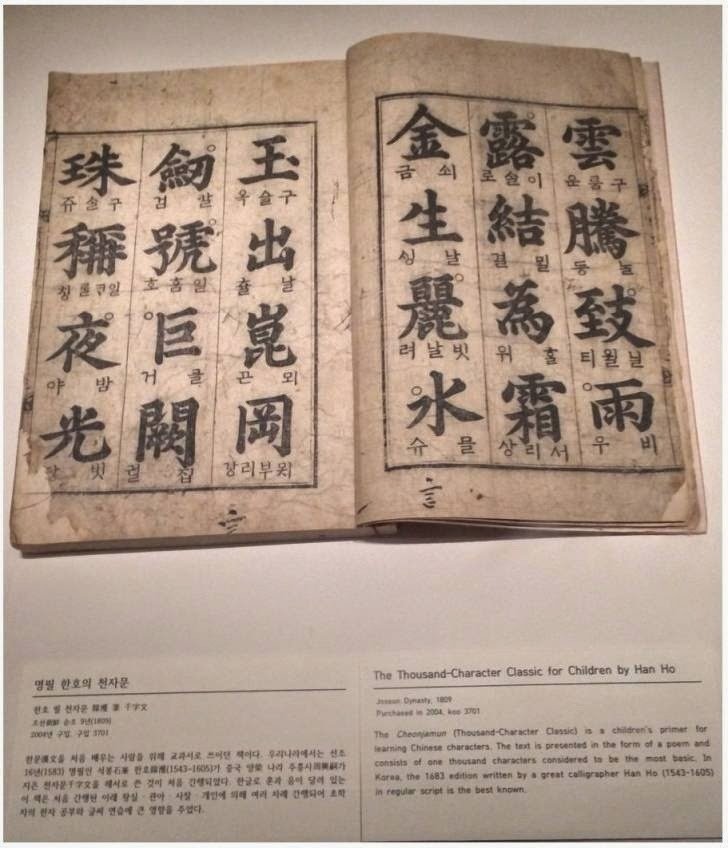 雲 구룸운 騰 ᄂᆞᆯ등 致 닐윌티 雨 비우
露 이슬로 結 ᄆᆡᆯ결 為 ᄒᆞᆯ위 霜 서리상
金 쇠금 生 날싱 麗 빗날려 水 믈슈
二
玉 구슬옥 出 날츌 崑 뫼곤 岡 부리강
劒 칼검 號 일홈호 巨 클거 闕 집궐
珠 구슬쥬 稱 일ᄏᆞᆯ칭 夜 밤야 光 빗
명필 한호의 천자문
한호 필 천자문 韓濩 筆 千字文
조선朝鮮 순조 9년(1809)
2004년 구입, 구입 3701
한문漢文을 처음 배우는 사람을 위해 교과서로 쓰이던 책이다. 우리나라에서는 선조
16년(1583) 명필인 석봉石峯 한호韓濩(1543-1605)가 중국 양梁 나라 주흥사周興嗣가
지은 천자문千字文을 해서로 쓴 것이 처음 간행되었다. 한글로 훈과 음이 달려 있는
이 책은 처음 간행된 이래 왕실·관아·사찰·개인에 의해 여러 차례 간행되어 초학
자의 한자 공부와 글씨 연습에 큰 영향을 주었다.
The Thousand-Character Classic for Children by Han Ho
Joseon Dynasty, 1809
Purchased in 2004, koo 3701
The Cheonjamun (Thousand-Character Classic) is a children's primer for
learning Chinese characters. The text is presented in the form of a poem and
consists of one thousand characters considered to be the most basic. In
Korea, the 1683 edition written by a great calligrapher Han Ho (1543-1605)
in regular script is the best known.